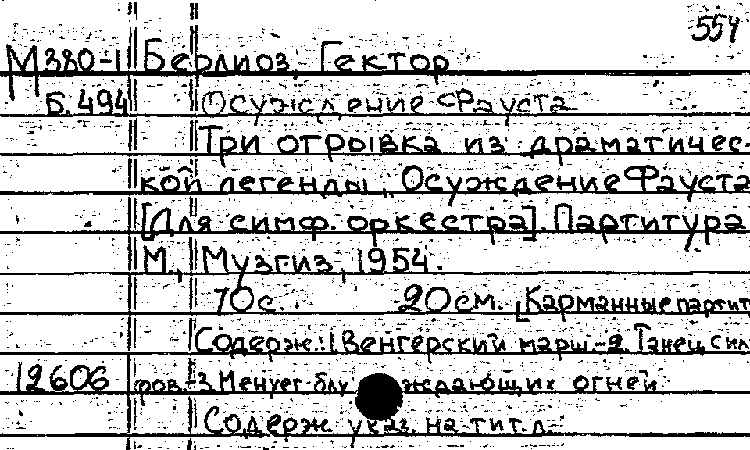 554
М380-1 Берлиоз, Гектор
Б.494 Осуждение Фауста
Три отрывка из драматичес-
кой легенды „Осуждение Фауста
[Для симф. оркестра]. Партитура
М., Музгиз, 1954.
70с. 20см. [Карманные партит
Содерж.: 1 Венгерский марш.-2. Танец сил
12606 фов.-3. Менуэт блу ждающих огней
Содерж. указ. на тит. л.